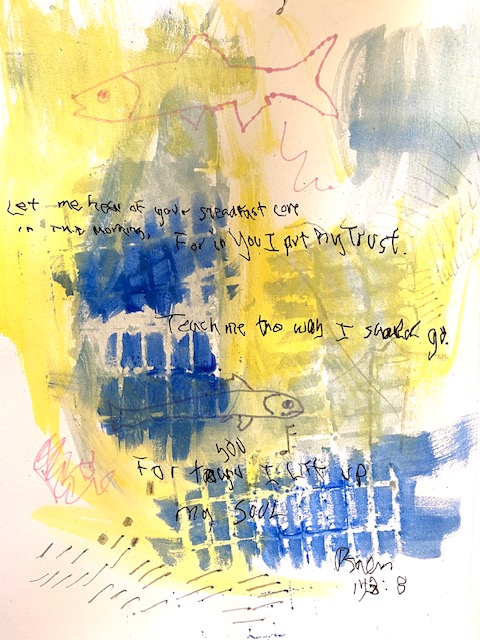 Let me hear of your steadfast love
in the morning,
For in You I put My Trust.
Teach me the way I should go.
you
For I Lift up
my Soul
143:8